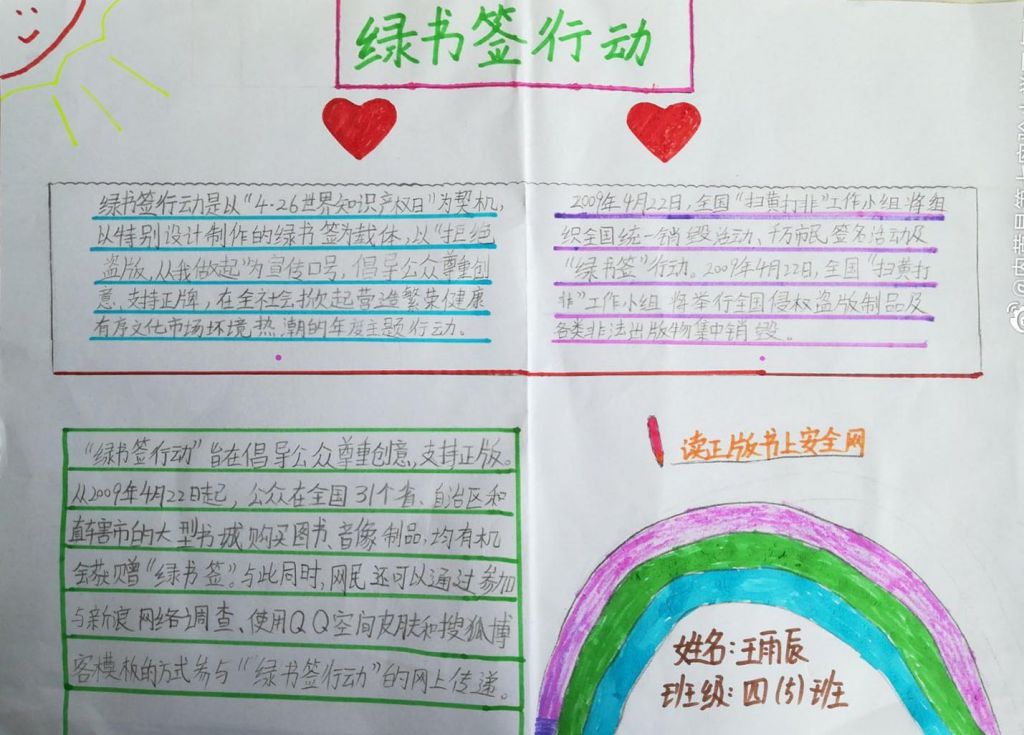 绿书签行动
绿书签行动是以“4·26世界知识产权日”为契机,
以特别设计制作的绿书签为载体,以“拒绝
盗版,从我做起”为宣传口号,倡导公众尊重创
意、支持正牌,在全社会掀起营造繁荣健康
有序文化市场环境热潮的年度主题行动。
2009年4月22日,全国“扫黄打非”工作小组将组
织全国统一销毁活动、千万市民签名活动及
“绿书签”行动。2009年4月22日,全国“扫黄打
非”工作小组将举行全国侵权盗版制品及
各类非法出版物集中销毁。
“绿书签行动”旨在倡导公众尊重创意,支持正版。
从2009年4月22日起,公众在全国31个省、自治区和
直辖市的大型书城购买图书、音像制品,均有机
会获赠“绿书签”。与此同时,网民还可以通过参加
与新浪网络调查、使用QQ空间皮肤和搜狐博
客模板的方式参与“绿书签行动”的网上传递。
读正版书上安全网
姓名:王雨辰
班级:四(5)班